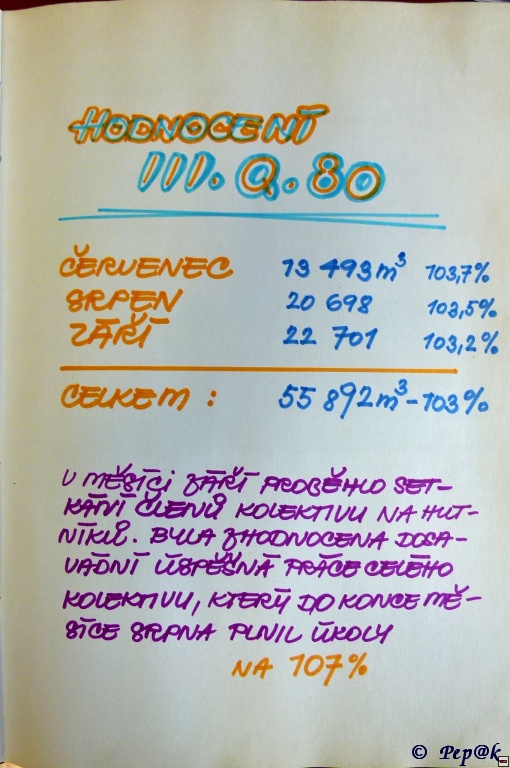 HODNOCENÍ
III. Q. 80
ČERVENEC 13 493 m³ 103,7%
SRPEN 20 698 103,5%
ZÁŘÍ 22 701 103,2%
CELKEM : 55 892 m³ - 103%
V MĚSÍCI ZÁŘÍ PROBĚHLO SET-
KÁNÍ ČLENŮ KOLEKTIVU NA HUT-
NÍKŮ. BYLA ZHODNOCENA DOSA-
VADNÍ ÚSPĚŠNÁ PRÁCE CELÉHO
KOLEKTIVU, KTERÝ DO KONCE MĚ-
SÍCE SRPNA PLNIL ÚKOLY
NA 107%
© Pep@k